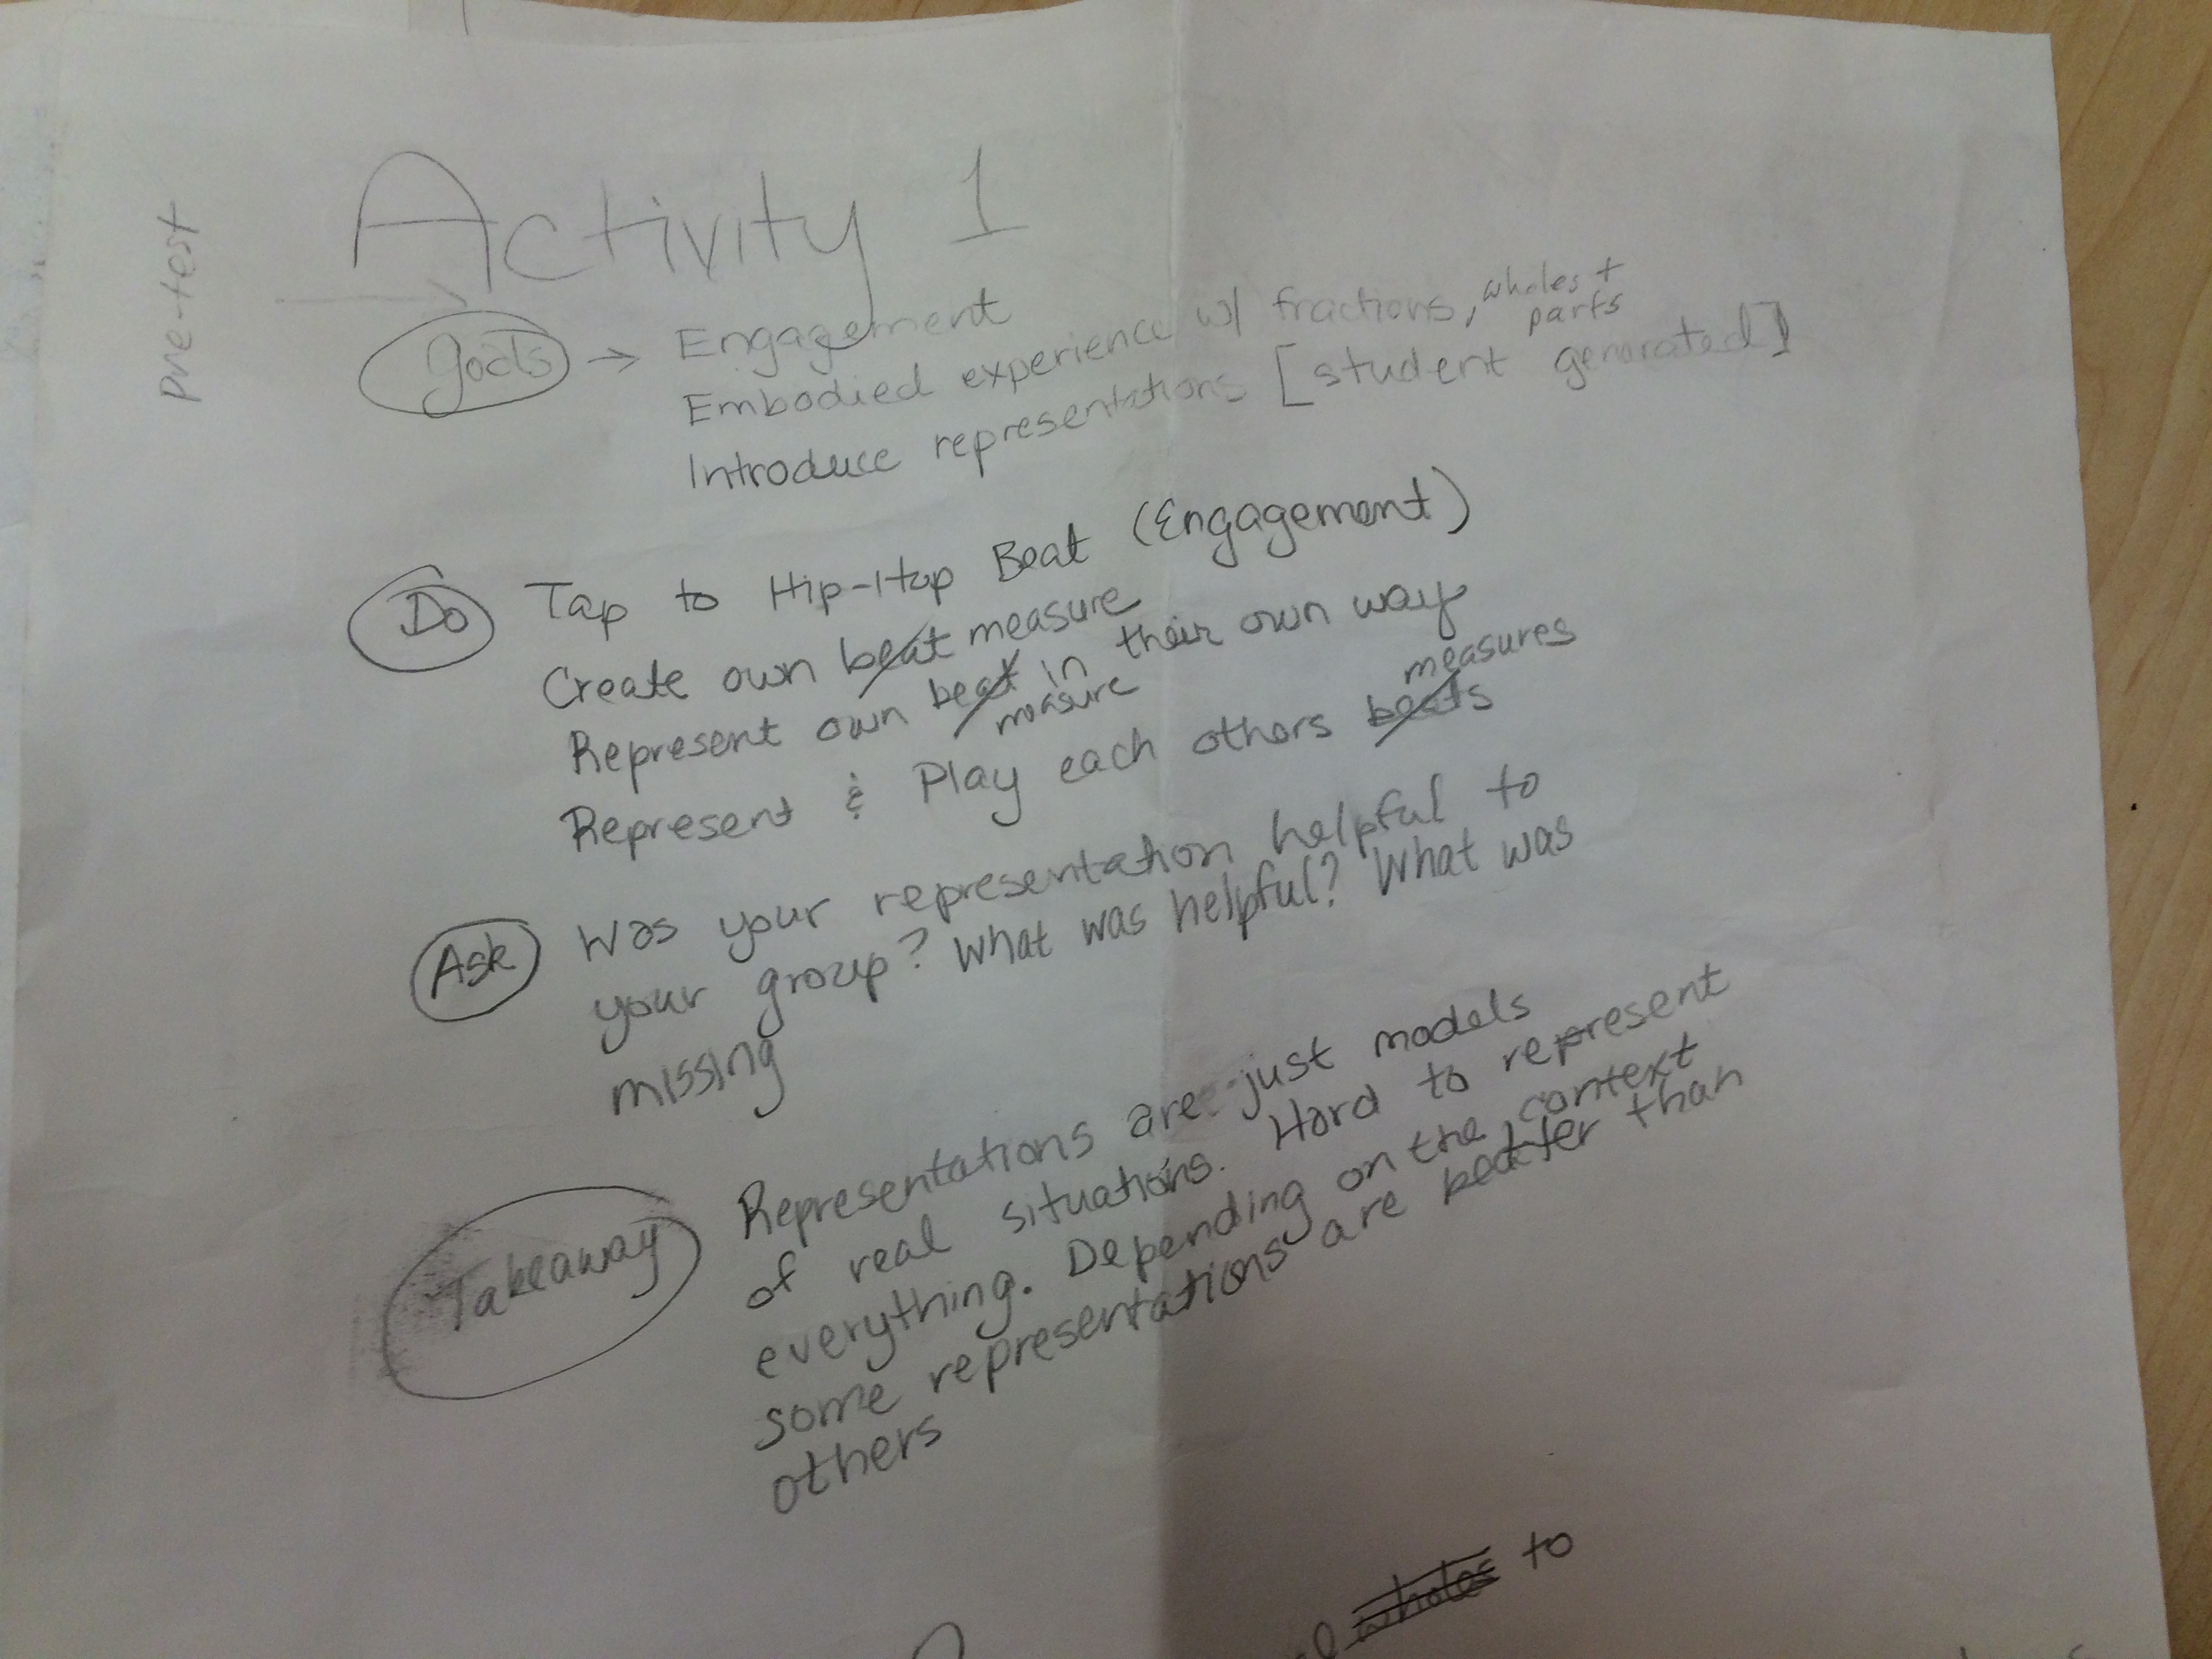 pre-test
Activity 1
goals → Engagement
Embodied experience w/ fractions, wholes + parts
Introduce representations [student generated]
Do Tap to Hip-Hop Beat (Engagement)
Create own beat measure
Represent own beat measure in their own way
Represent & Play each others beats measures
Ask Was your representation helpful to
your group? What was helpful? What was
missing
Takeaway Representations are just models
of real situations. Hard to represent
everything. Depending on the context
some representations are better than
others
wholes to